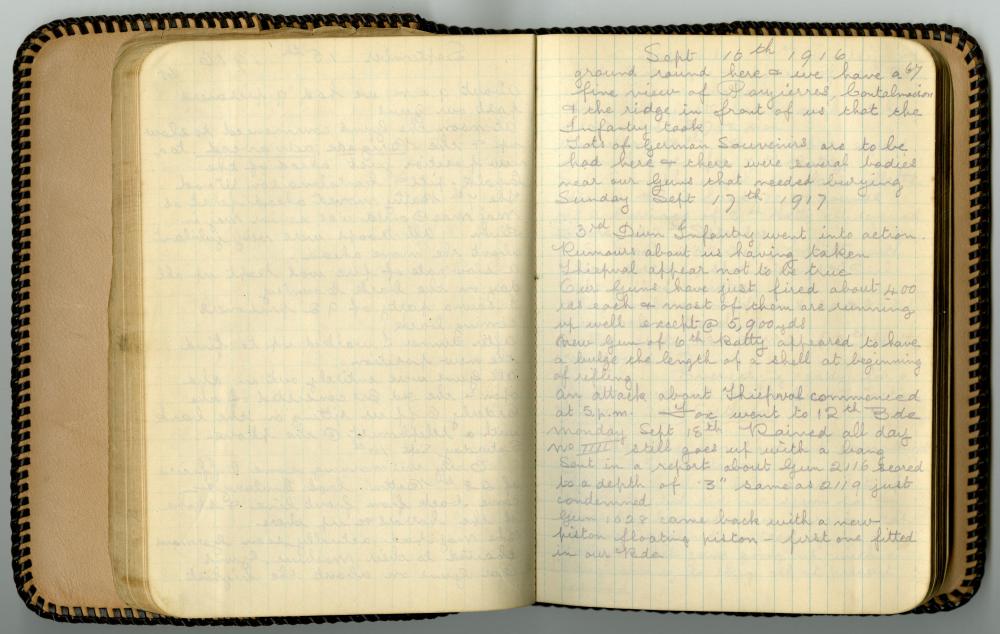 Sept 16th 1916
67
ground round here & we have a
fine view of Pozierres, Contalmaison
& the ridge in front of us that the
Infantry took
Lots of German Souvenirs are to be
had here & there were several bodies
near our Guns that needed burying
Sunday Sept 17th 1917
3rd Divn Infantry went into action.
Rumours about us having taken
Thiepval appear not to be true
Our Guns have just fired about 400
each & most of them are running
up well except @ 5,900 yds
New Gun of 6th Batty appeared to have
a bulge the length of a shell at beginning
of rifling
An attack about Thiepval commenced
at 5 p.m. Fox went to 12th Bde
Monday Sept 18th Rained all day
No still goes up with a bang
Sent in a report about Gun 2116 scored
to a depth of "3" same as 2119 just
condemned
Gun 1628 came back with a new
piston floating piston - first one fitted
in our Bde